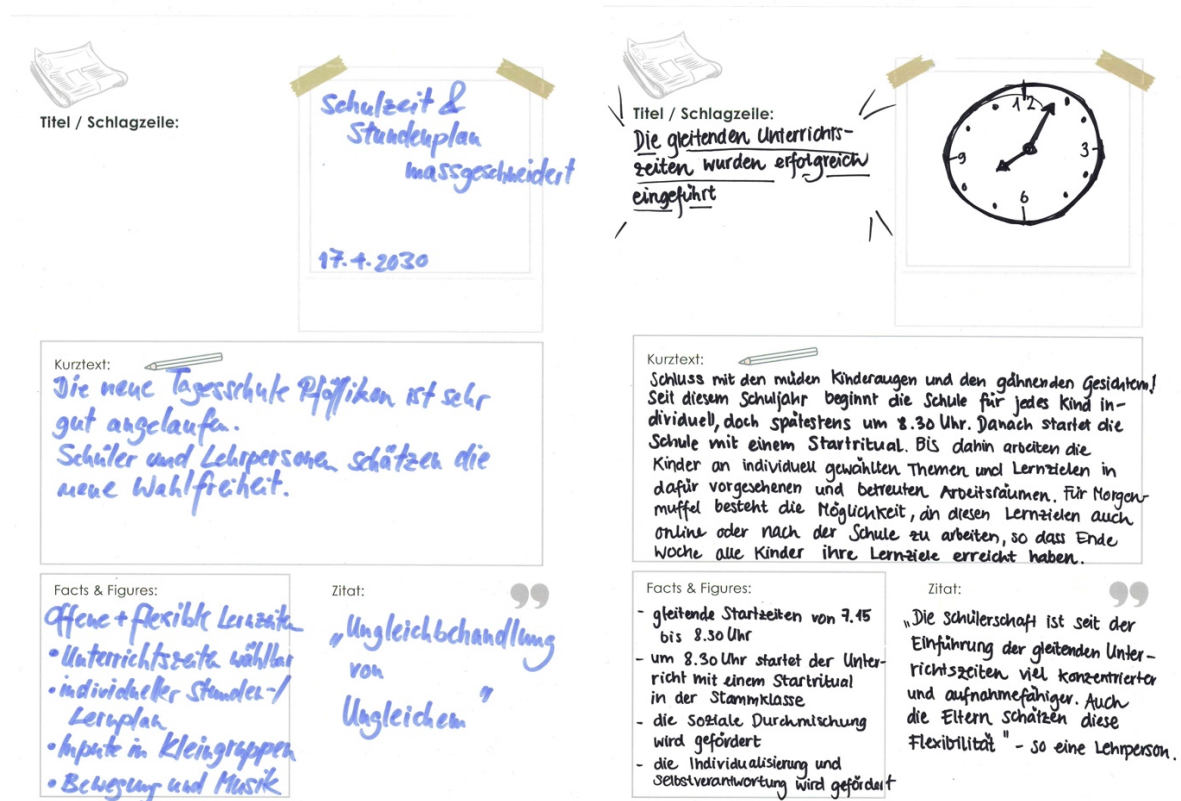 Titel / Schlagzeile:
Schulzeit &
Stundenplan
massgeschneidert
17.4.2030
Kurztext:
Die neue Tagesschule Pfäffikon ist sehr
gut angelaufen.
Schüler und Lehrpersonen schätzen die
neue Wahlfreiheit.
Facts & Figures:
Offene + flexible Lernzeiten
• Unterrichtszeiten wählbar
• individueller Stunden-/
Lernplan
• Inputs in Kleingruppen
• Bewegung und Musik
Zitat:
„Ungleichbehandlung
von
Ungleichem"
Titel / Schlagzeile:
Die gleitenden Unterrichts-
zeiten wurden erfolgreich
eingeführt
12
9
3
6
Kurztext:
Schluss mit den müden Kinderaugen und den gähnenden Gesichtern!
Seit diesem Schuljahr beginnt die Schule für jedes Kind in-
dividuell, doch spätestens um 8.30 Uhr. Danach startet die
Schule mit einem Startritual. Bis dahin arbeiten die
Kinder an individuell gewählten Themen und Lernzielen in
dafür vorgesehenen und betreuten Arbeitsräumen. Für Morgen-
muffel besteht die Möglichkeit, an diesen Lernzielen auch
online oder nach der Schule zu arbeiten, so dass Ende
Woche alle Kinder ihre Lernziele erreicht haben.
Facts & Figures:
- gleitende Startzeiten von 7.15
bis 8.30 Uhr
- um 8.30 Uhr startet der Unter-
richt mit einem Startritual
in der Stammklasse
- die Soziale Durchmischung
wird gefördert
- die Individualisierung und
Selbstverantwortung wird gefördert
Zitat:
„Die Schülerschaft ist seit der
Einführung der gleitenden Unter-
richtszeiten viel konzentrierter
und aufnahmefähiger. Auch
die Eltern schätzen diese
Flexibilität" - so eine Lehrperson.